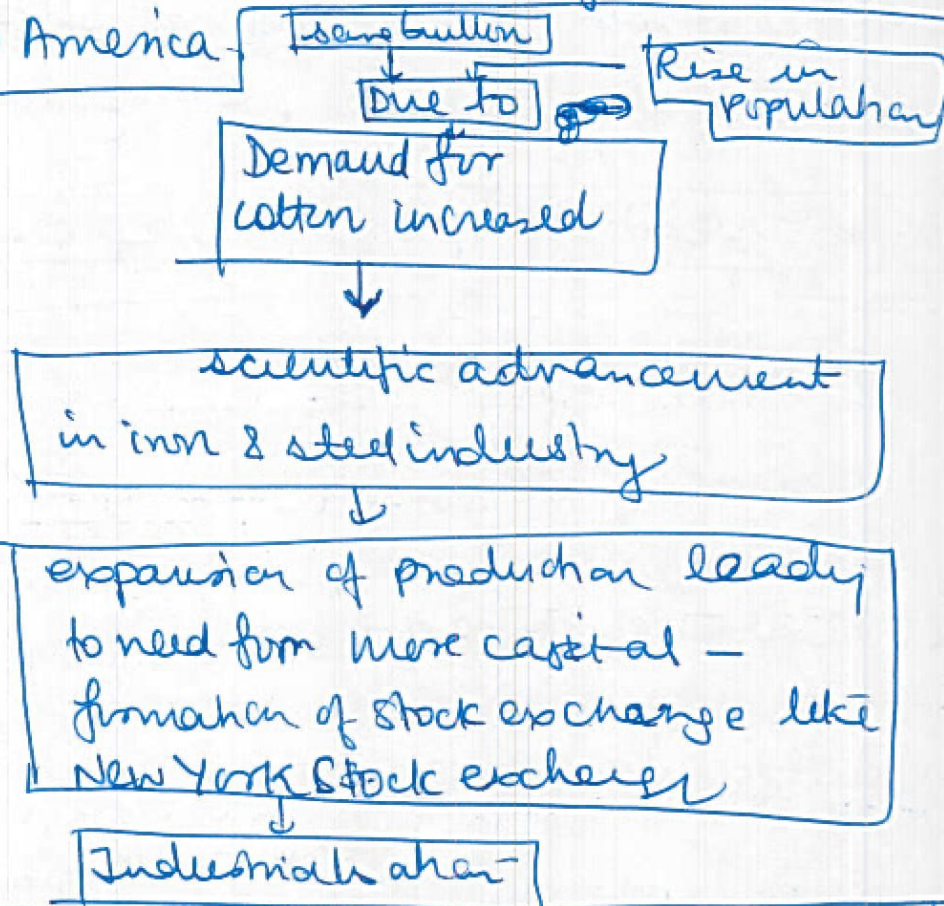 America
Rise in
Population
Due to
Demand for
cotton increased
scientific advancement
in iron & steel industry
expansion of production leading
to need for more capital –
formation of stock exchange like
New York Stock exchange
Industrialization